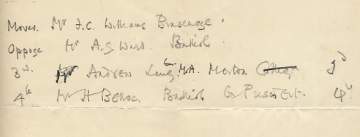 Mover. Mr F.C. Williams Brasenose.
Oppose Mr A.S. Ward. Balliol.
3rd. Mr Andrew Lang M.A. Merton College 3d
4th Mr H Belloc Balliol Ex President. 4th